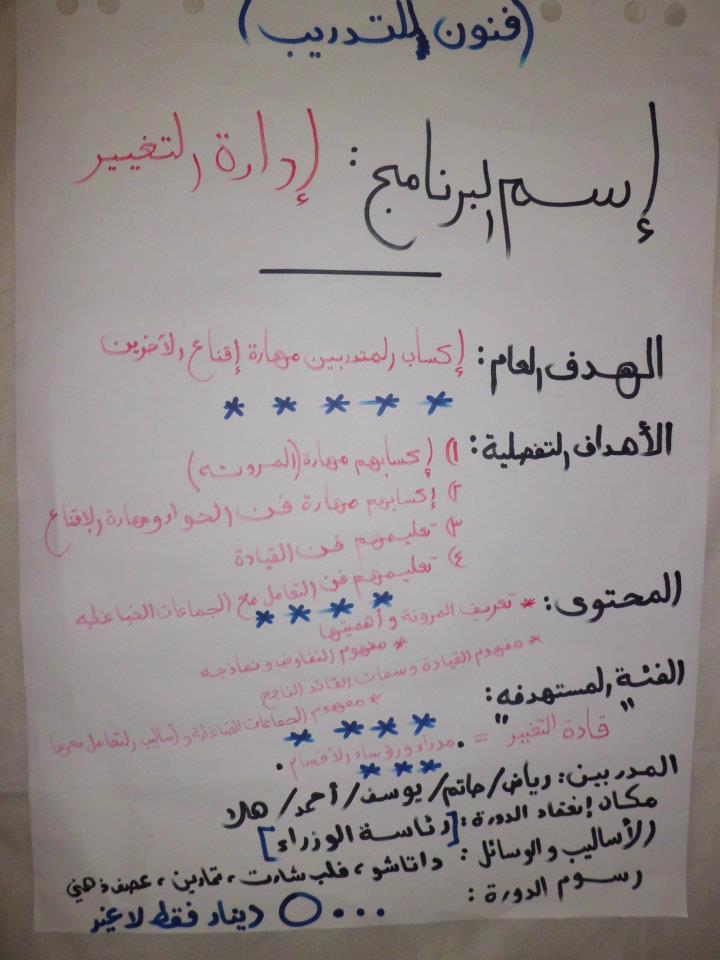 (فنون التدريب)
إسم البرنامج: إدارة التغيير
الهدف العام: إكساب المتدربين مهارة إقناع الآخرين
الأهداف التفصلية: ١) إكسابهم مهارة (المرونه)
٢) إكسابهم مهارة فن الحوار ومهارة الإقناع
٣) تعليمهم فن القيادة
٤) تعليمهم فن التعامل مع الجماعات الضاغطه
المحتوى: * تعريف المرونة وأهميتها
* مفهوم التفاوض ونماذجه
* مفهوم القيادة وسمات القائد الناجح
* مفهوم الجماعات الضاغطة وأساليب التعامل معها
الفئة المستهدفه:
"قادة التغيير" = . مدراء ورؤساء الأقسام .
المدربين: رياض/حاتم/يوسف/أحمد/هلا
مكان إنعقاد الدورة: [رئاسة الوزراء]
الأساليب والوسائل: داتاشو، فلب شارت، تمارين، عصف ذهني
رسوم الدورة:
٥٠٠٠ دينار فقط لا غير